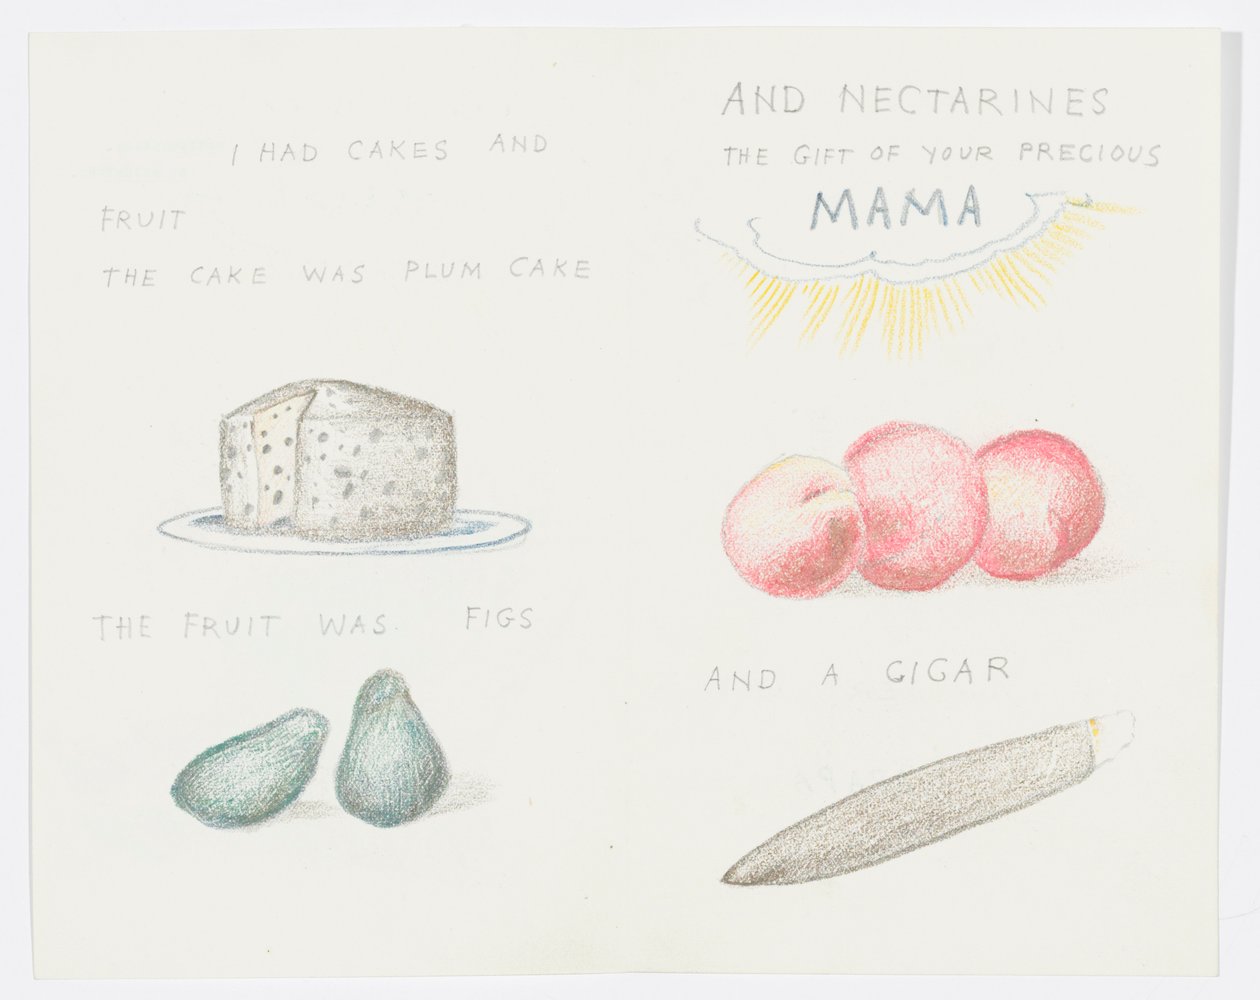 I HAD CAKES AND
FRUIT
THE CAKE WAS PLUM CAKE
THE FRUIT WAS. FIGS
AND NECTARINES
THE GIFT OF YOUR PRECIOUS
MAMA
AND A GIGAR